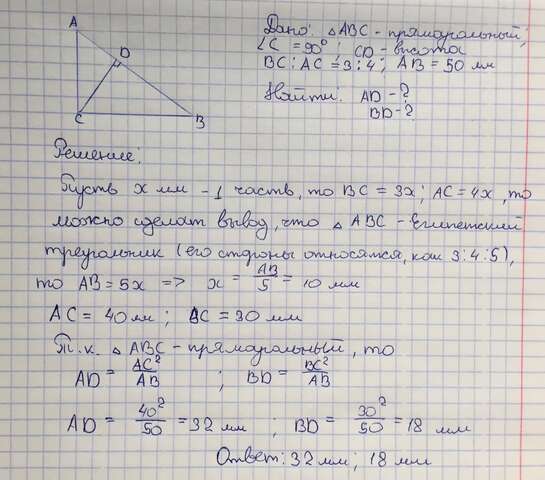 A
D
C
B
Дано: △ABC - прямоугольный;
∠C = 90°; CD - высота
BC : AC = 3 : 4; AB = 50 мм
Найти: AD - ?
BD - ?
Решение:
Пусть x мм - 1 часть, то BC = 3x; AC = 4x, то
можно сделат вывод, что △ ABC - Египетский
треугольник (его стороны относятся, как 3:4:5),
то AB = 5x => x = AB/5 = 10 мм
AC = 40 мм; BC = 30 мм
Т.к. △ ABC - прямоугольный, то
AD = AC²/AB ; BD = BC²/AB
AD = 40²/50 = 32 мм ; BD = 30²/50 = 18 мм
Ответ: 32 мм; 18 мм